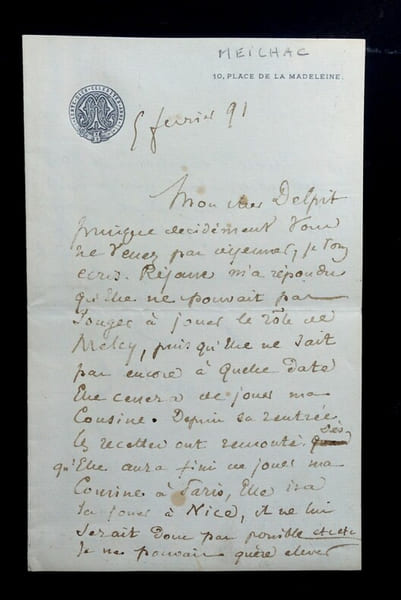 MEILHAC
10, PLACE DE LA MADELEINE.
5 fevrier 91
Mon cher Delpit
puisque decidément Vous
ne Venez pas déjeuner, je vous
écris. Réjane m'a répondu
qu'Elle ne pouvait pas
songer à jouer le rôle de
puis qu'Elle ne sait
pas encore à quelle date
Elle cessera de jouer ma
Cousine. Depuis sa rentrée
les recettes ont remonté. Dès
qu'Elle aura fini de jouer ma
Cousine à Paris, Elle ira
la jouer à Nice, il ne lui
serait donc pas possible etc etc
Je ne pouvais guère élever